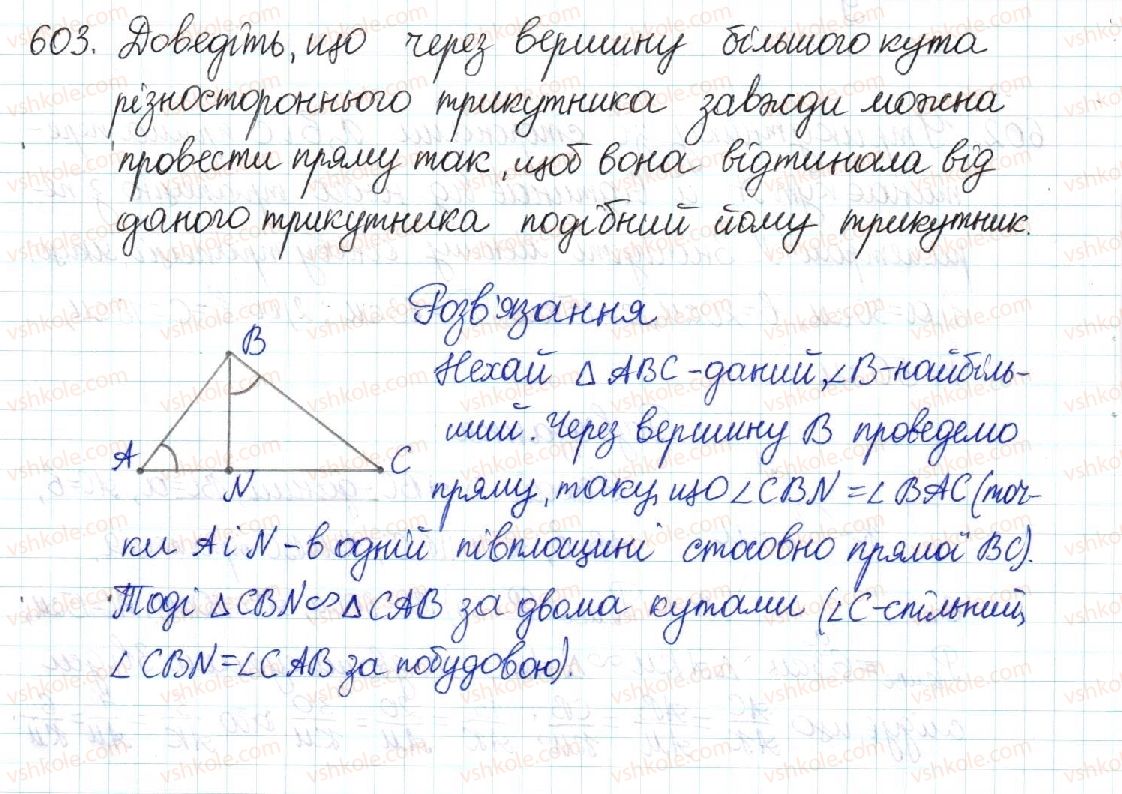 603. Доведіть, що через вершину більшого кута
різностороннього трикутника завжди можна
провести пряму так, щоб вона відтинала від
даного трикутника подібний йому трикутник.
Розв'язання
B
A
N
C
Нехай △ ABC - даний, ∠B - найбіль-
ший. Через вершину B проведемо
пряму, таку, що ∠CBN = ∠BAC (точ-
ки A і N - в одній півплощині стосовно прямої BC).
Тоді △CBN∽△CAB за двома кутами (∠C - спільний,
∠CBN = ∠CAB за побудовою).
vshkole.com